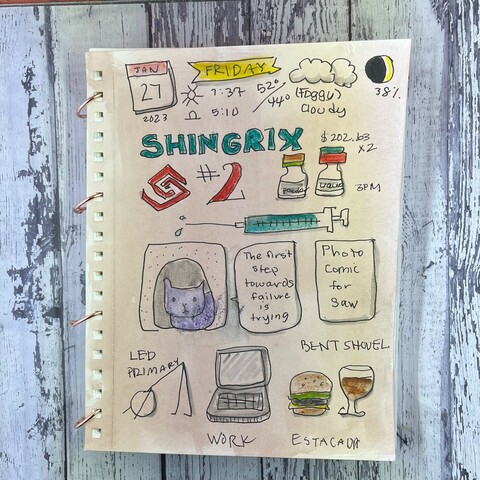 JAN
27
2023
FRIDAY
7:37
5:10
52°/44°
(Foggy)
Cloudy
38%
SHINGRIX
$202.63
x2
#2
3PM
The first
step
towards
failure
is
trying
Photo
Comic
for
Saw
LED
PRIMARY
BENT SHOVEL
WORK
ESTACADA